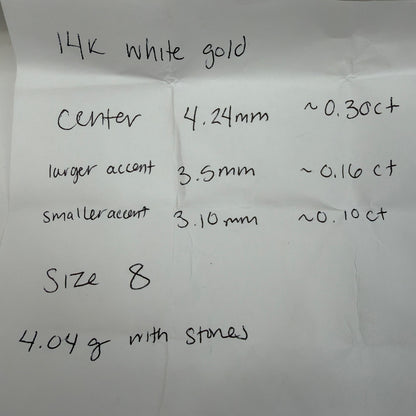 14K white gold
center 4.24mm ~0.30ct
larger accent 3.5mm ~0.16 ct
smaller accent 3.10mm ~0.10ct
Size 8
4.04g with stones